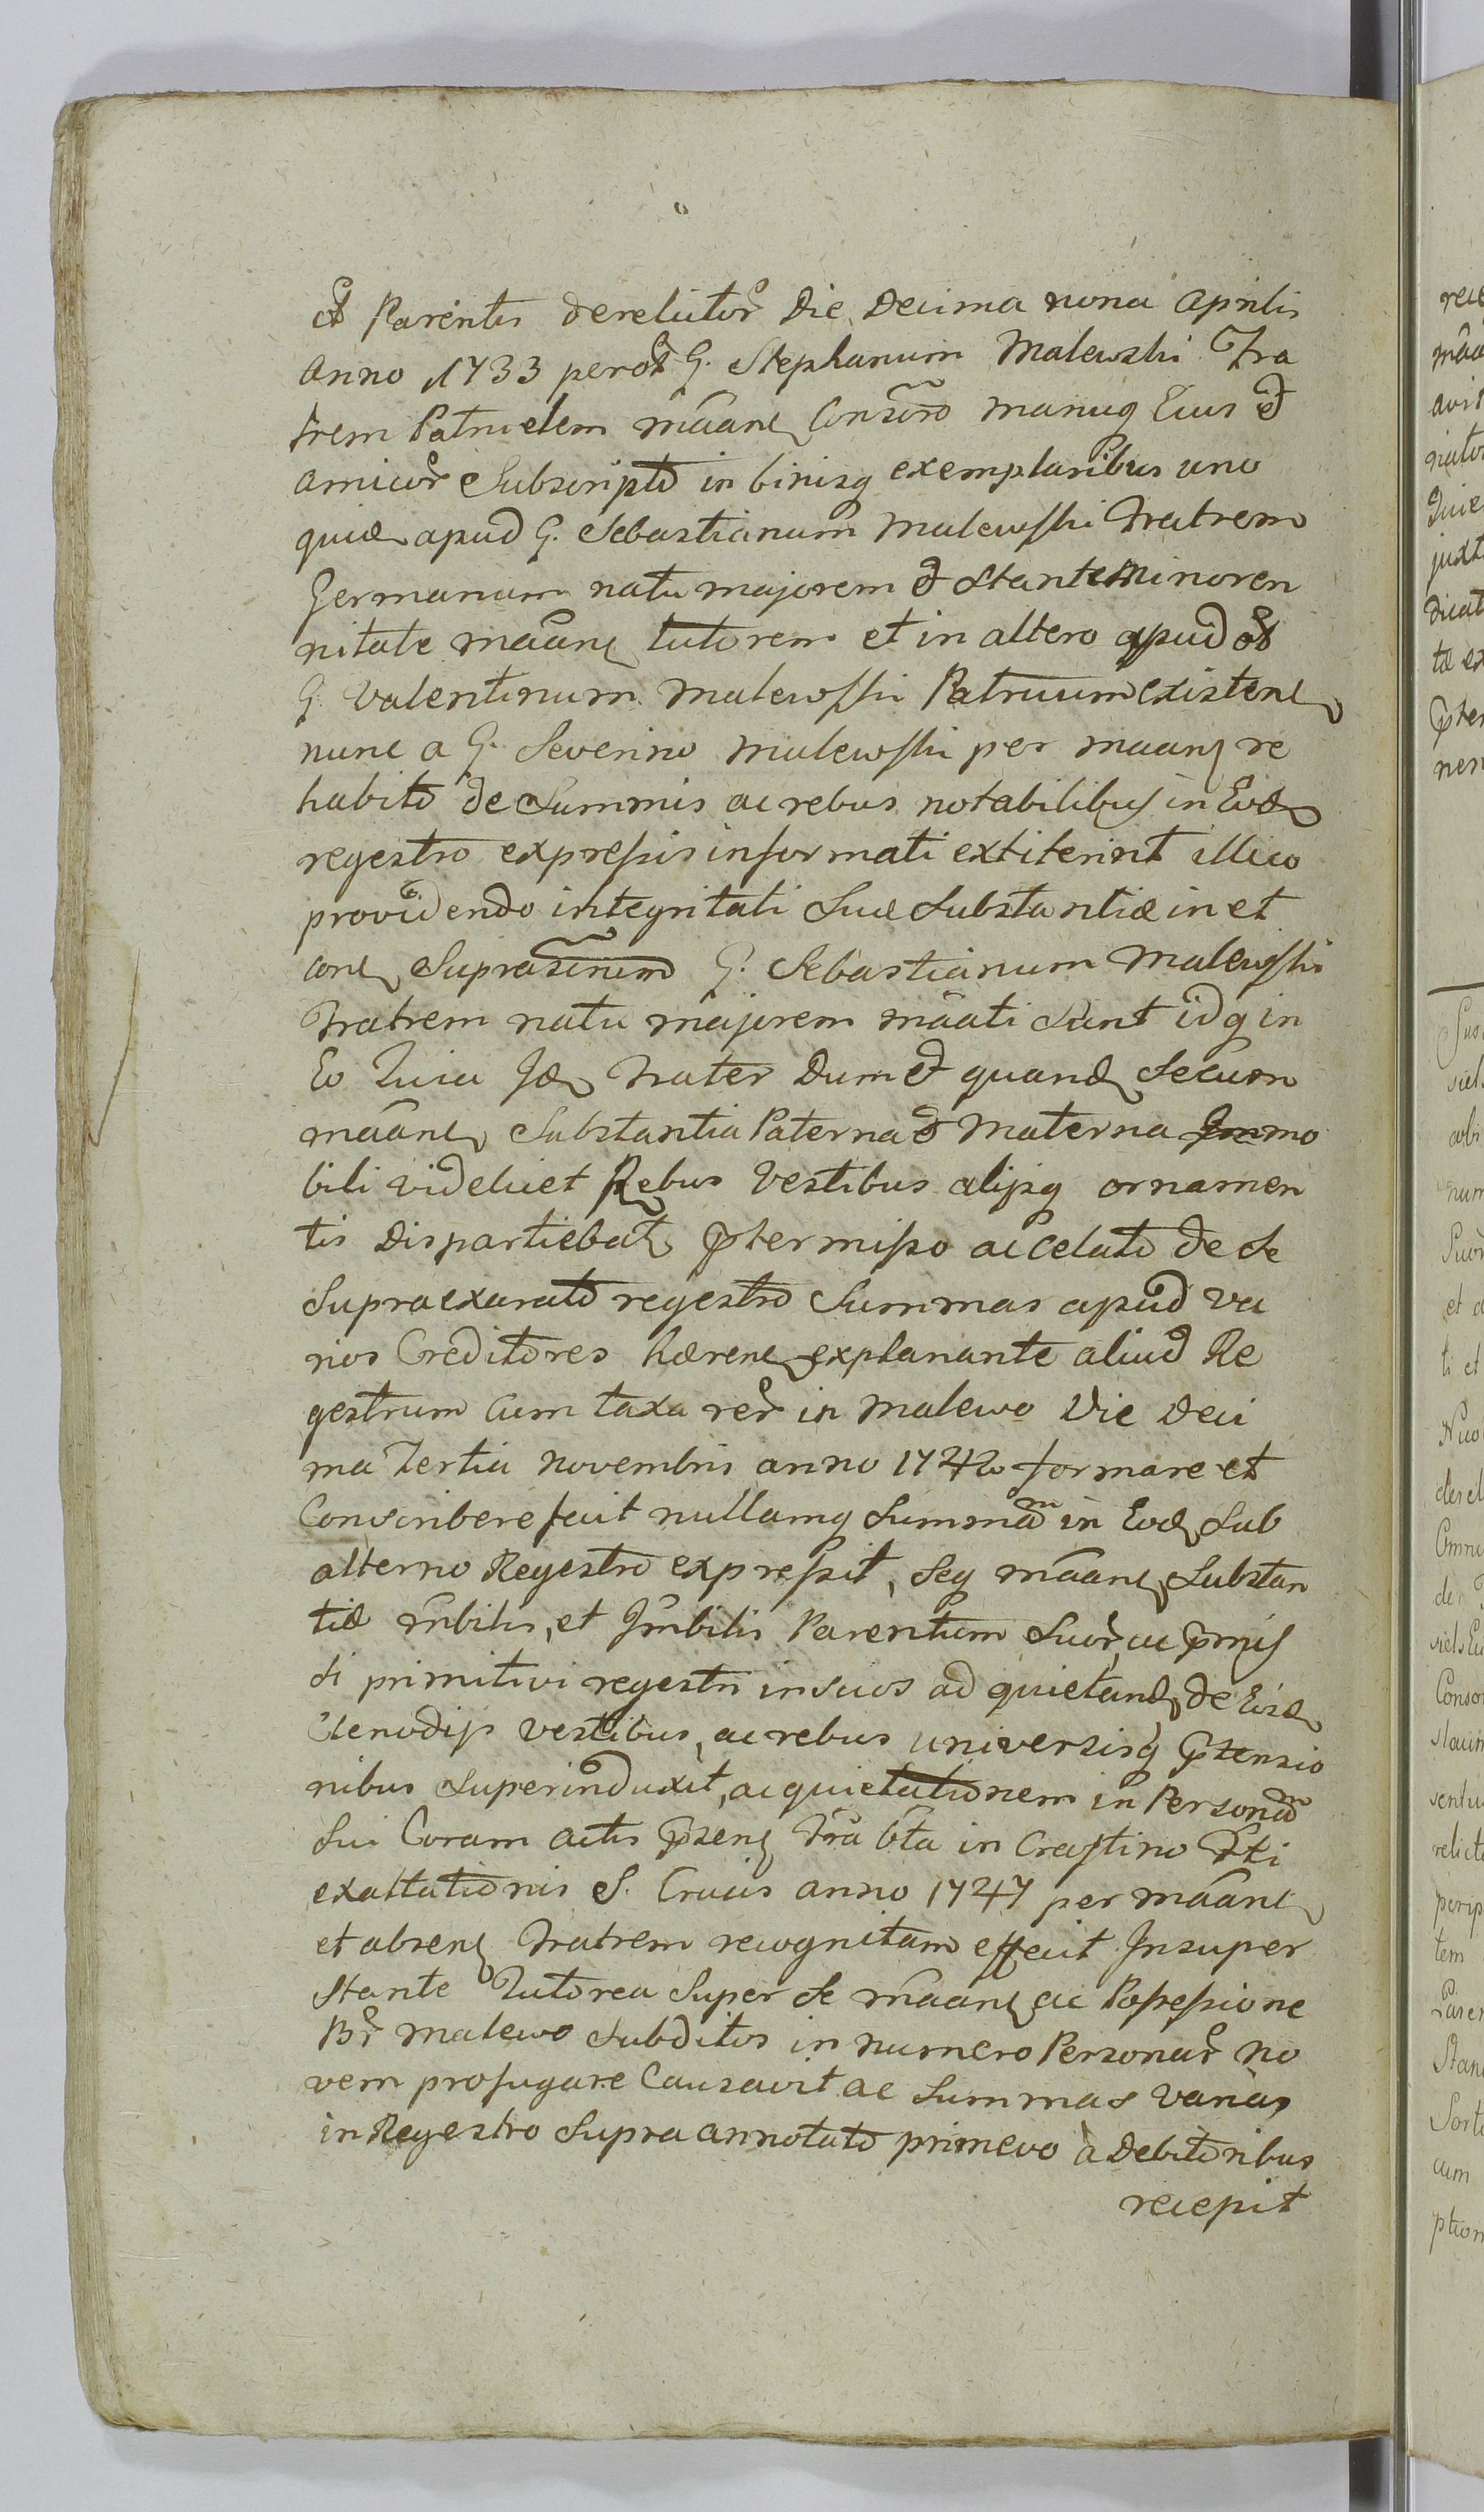 et Parentis derelictor Die Decima nona Aprilis
Anno 1733 per G. Stephanum Malewski Fra
trem Patruelem mãanc Conscro manuq Eius et
amicor Subscripto in binisq exemplaribus uno
quid apud G. Sebastianum Malewski Fratrem
Germanum natu majorem et Stante Minoren
nitate mãanc tutorem et in altero apud
G. Valentinum Malewski Patruum existenc
nunc a G. Severino Malewski per maanc re
habito de Summis ac rebus notabilibus in Eod
regestro expressis informati extiterint illico
providendo integritati Suæ Substantiæ in et
conc Suprascrium G. Sebastianum Malewski
Fratrem natu majorem mãati Sunt idq in
Eo Quia Id Frater Dum et quand Secum
mãanc Substantia Paterna et Materna Immo
bili videlicet Rebus Vestibus alijsq ornamen
tis Dispartiebat ptermisso ac celato de Se
Supraexarato regestro Summas apud va
rios Creditores hærenc explanante aliud Re
gestrum Cum taxa rer in Malewo Die Deci
ma Tertia Novembris anno 1742 formare et
Conscribere fecit nullamq Summam in Eod Sub
alterno Regestro expressit, Seq mãanc Substan
tiæ mbilis, et Imbilis Parentum Suor, ac pmis
si primitivi regestri inscios ad quietand de Eisd
Clenodijs Vestibus, ac rebus universisq ptensio
nibus Superinduxit, ac quietationem in Personam
Sui Coram actis psenc Fra bta in Crastino Fti
exaltationis S. Crucis anno 1747 per mãanc
et absenc Fratrem recognitam effecit Insuper
Stante Tutorea Super Se mãanc ac Possessione
Br Malewo Subditos in numero Personar no
vem profugare Causavit ac Summas varias
in Regestro Supra annotato primevo à Debitoribus
recepit